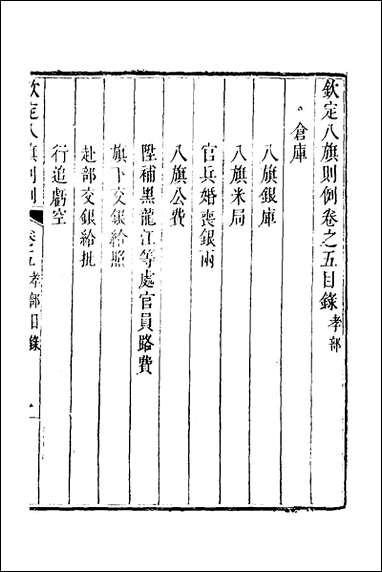 欽定八旗則例卷之五目錄孝部
倉庫
八旗銀庫
八旗米局
官兵婚喪銀兩
八旗公費
陞補黑龍江等處官員路費
旗下交銀給照
赴部交銀給批
行追虧空
欽定八旗則例 卷之五孝部目錄 一